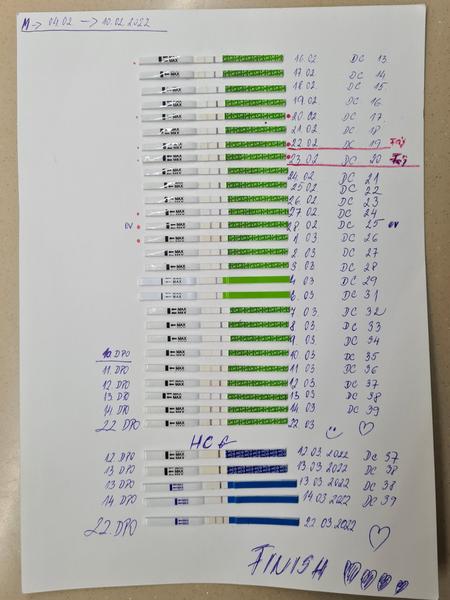 M → 04.02 → 10.02.2022
16.02 DC 13
17.02 DC 14
18.02 DC 15
19.02 DC 16
20.02 DC 17
21.02 DC 18
22.02 DC 19
23.02 DC 20
24.02 DC 21
25.02 DC 22
26.02 DC 23
27.02 DC 24
OV 28.02 DC 25 OV
1.03 DC 26
2.03 DC 27
3.03 DC 28
4.03 DC 29
6.03 DC 31
7.03 DC 32
8.03 DC 33
9.03 DC 34
10 DPO 10.03 DC 35
11 DPO 11.03 DC 36
12 DPO 12.03 DC 37
13 DPO 13.03 DC 38
14 DPO 14.03 DC 39
22 DPO 22.03
HCG
12 DPO 12.03.2022 DC 37
13 DPO 13.03.2022 DC 38
13 DPO 13.03.2022 DC 38
14 DPO 14.03.2022 DC 39
22.DPO 22.03.2022
FINISH